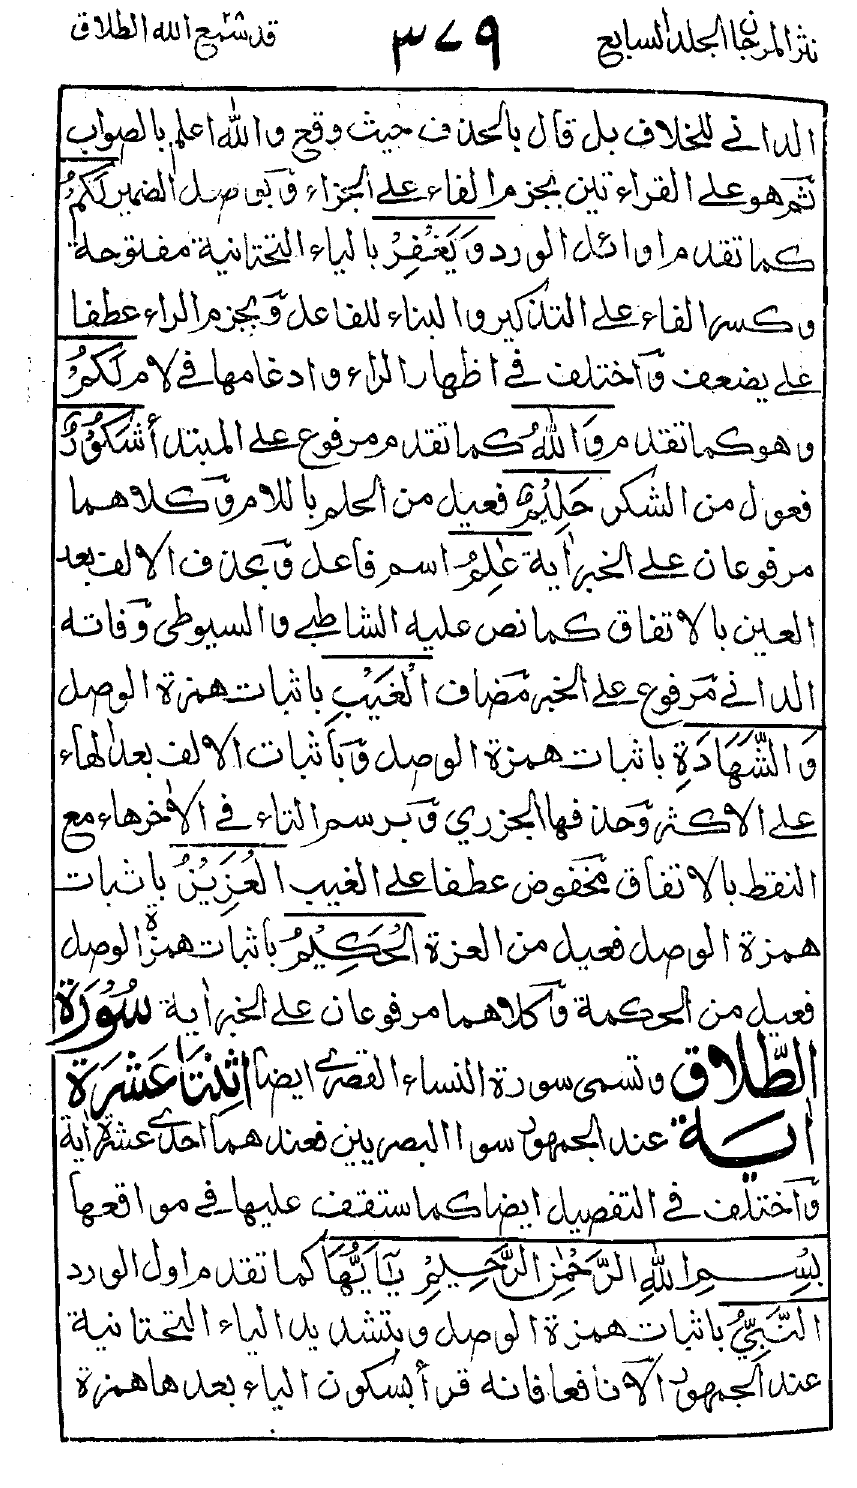 نثر المرجان الجلد السابع ٣٧٩ قد سمع الله ٢٨ الطلاق
الدانى للخلاف بل قال بالحذف حيث وقع والله اعلم بالصواب
ثم هو على القراءتين بجزم الفاء على الجزاء وبوصل الضمير لَكُمْ
كما تقدم اوائل الورد وَيَغْفِرْ بالياء التحتانية مفتوحة
وكسر الفاء على التذكير والبناء للفاعل وبجزم الراء عطفا
على يضعف واختلف فے اظهار الراء وادغامها فے لام لَكُمْ
وهو كما تقدم وَاللهُ كما تقدم مرفوع على المبتدأ شَكُوْرٌ
فعول من الشكر حَلِيْمٌ فعيل من الحلم باللام وكلاهما
مرفوعان على الخبر اٰية عٰلِمُ اسم فاعل وبحذف الالف بعد
العين بالاتفاق كما نص عليه الشاطبے والسيوطى وفاته
الدانے مرفوع على الخبر مضاف الْغَيْبِ باثبات همزة الوصل
وَالشَّهَادَةِ باثبات همزة الوصل وباثبات الالف بعد الهاء
على الاكثر وحذفها الجزري وبرسم التاء فے الاٰخر هاء مع
النقط بالاتفاق مخفوض عطفا على الغيب الْعَزِيْزُ باثبات
همزة الوصل فعيل من العزة الْحَكِيْمُ باثبات همزة الوصل
فعيل من الحكمة وكلاهما مرفوعان على الخبر اٰية سُوْرَةُ
الطَّلَاقِ وتسمى سورة النساء القصرى ايضا اثْنَتَا عَشَرَةَ
اٰيـــة عند الجمهور سوا البصريين فعندهما احدى عشرة اٰية
واختلف فے التفصيل ايضا كما ستقف عليها فے مواقعها
بِسْــمِ اللهِ الرَّحْمٰنِ الرَّحِيْمِ يٰٓاَيُّهَا كما تقدم اول الورد
النَّبِيُّ باثبات همزة الوصل وبتشديد الياء التحتانية
عند الجمهور الا نافعا فانه قرأ بسكون الياء بعدها همزة